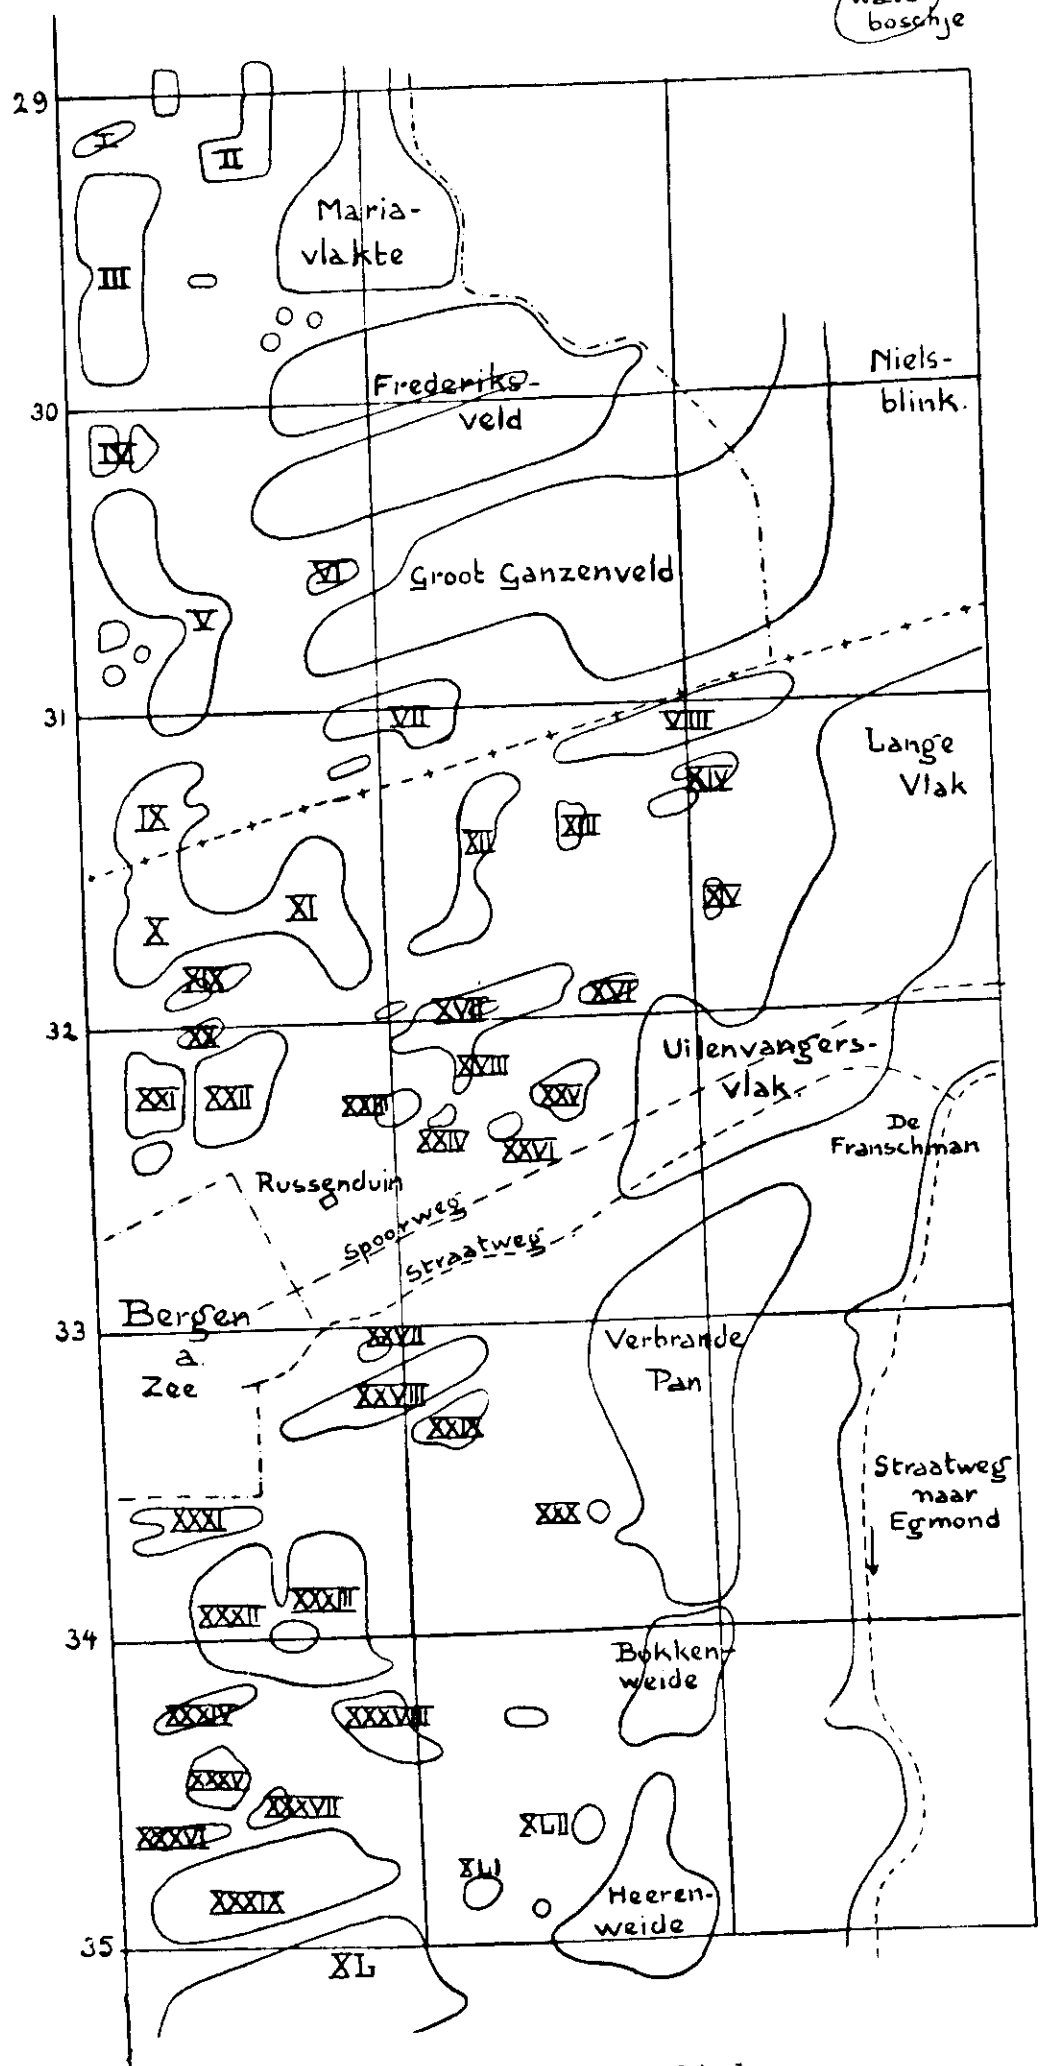 boschje
29
I
II
Maria-
vlakte
III
Niels-
blink.
Frederiks-
veld
30
IV
VI
Groot Ganzenveld
V
31
VII
VIII
Lange
Vlak
XIV
IX
XIII
XII
XV
XI
X
XIX
XVI
XVII
32
XX
Uilenvangers-
vlak.
XVIII
XXI
XXII
XXIII
XXV
XXIV
XXVI
De
Franschman
Russenduin
Spoorweg
Straatweg
Bergen
a.
Zee
33
XXVII
Verbrande
Pan
XXVIII
XXIX
Straatweg
naar
Egmond
XXX
XXXI
XXXII
XXXIII
34
Bokken-
weide
XXXIV
XXXVIII
XXXV
XXXVII
XXXVI
XLII
XLI
XXXIX
Heeren-
weide
35
XL